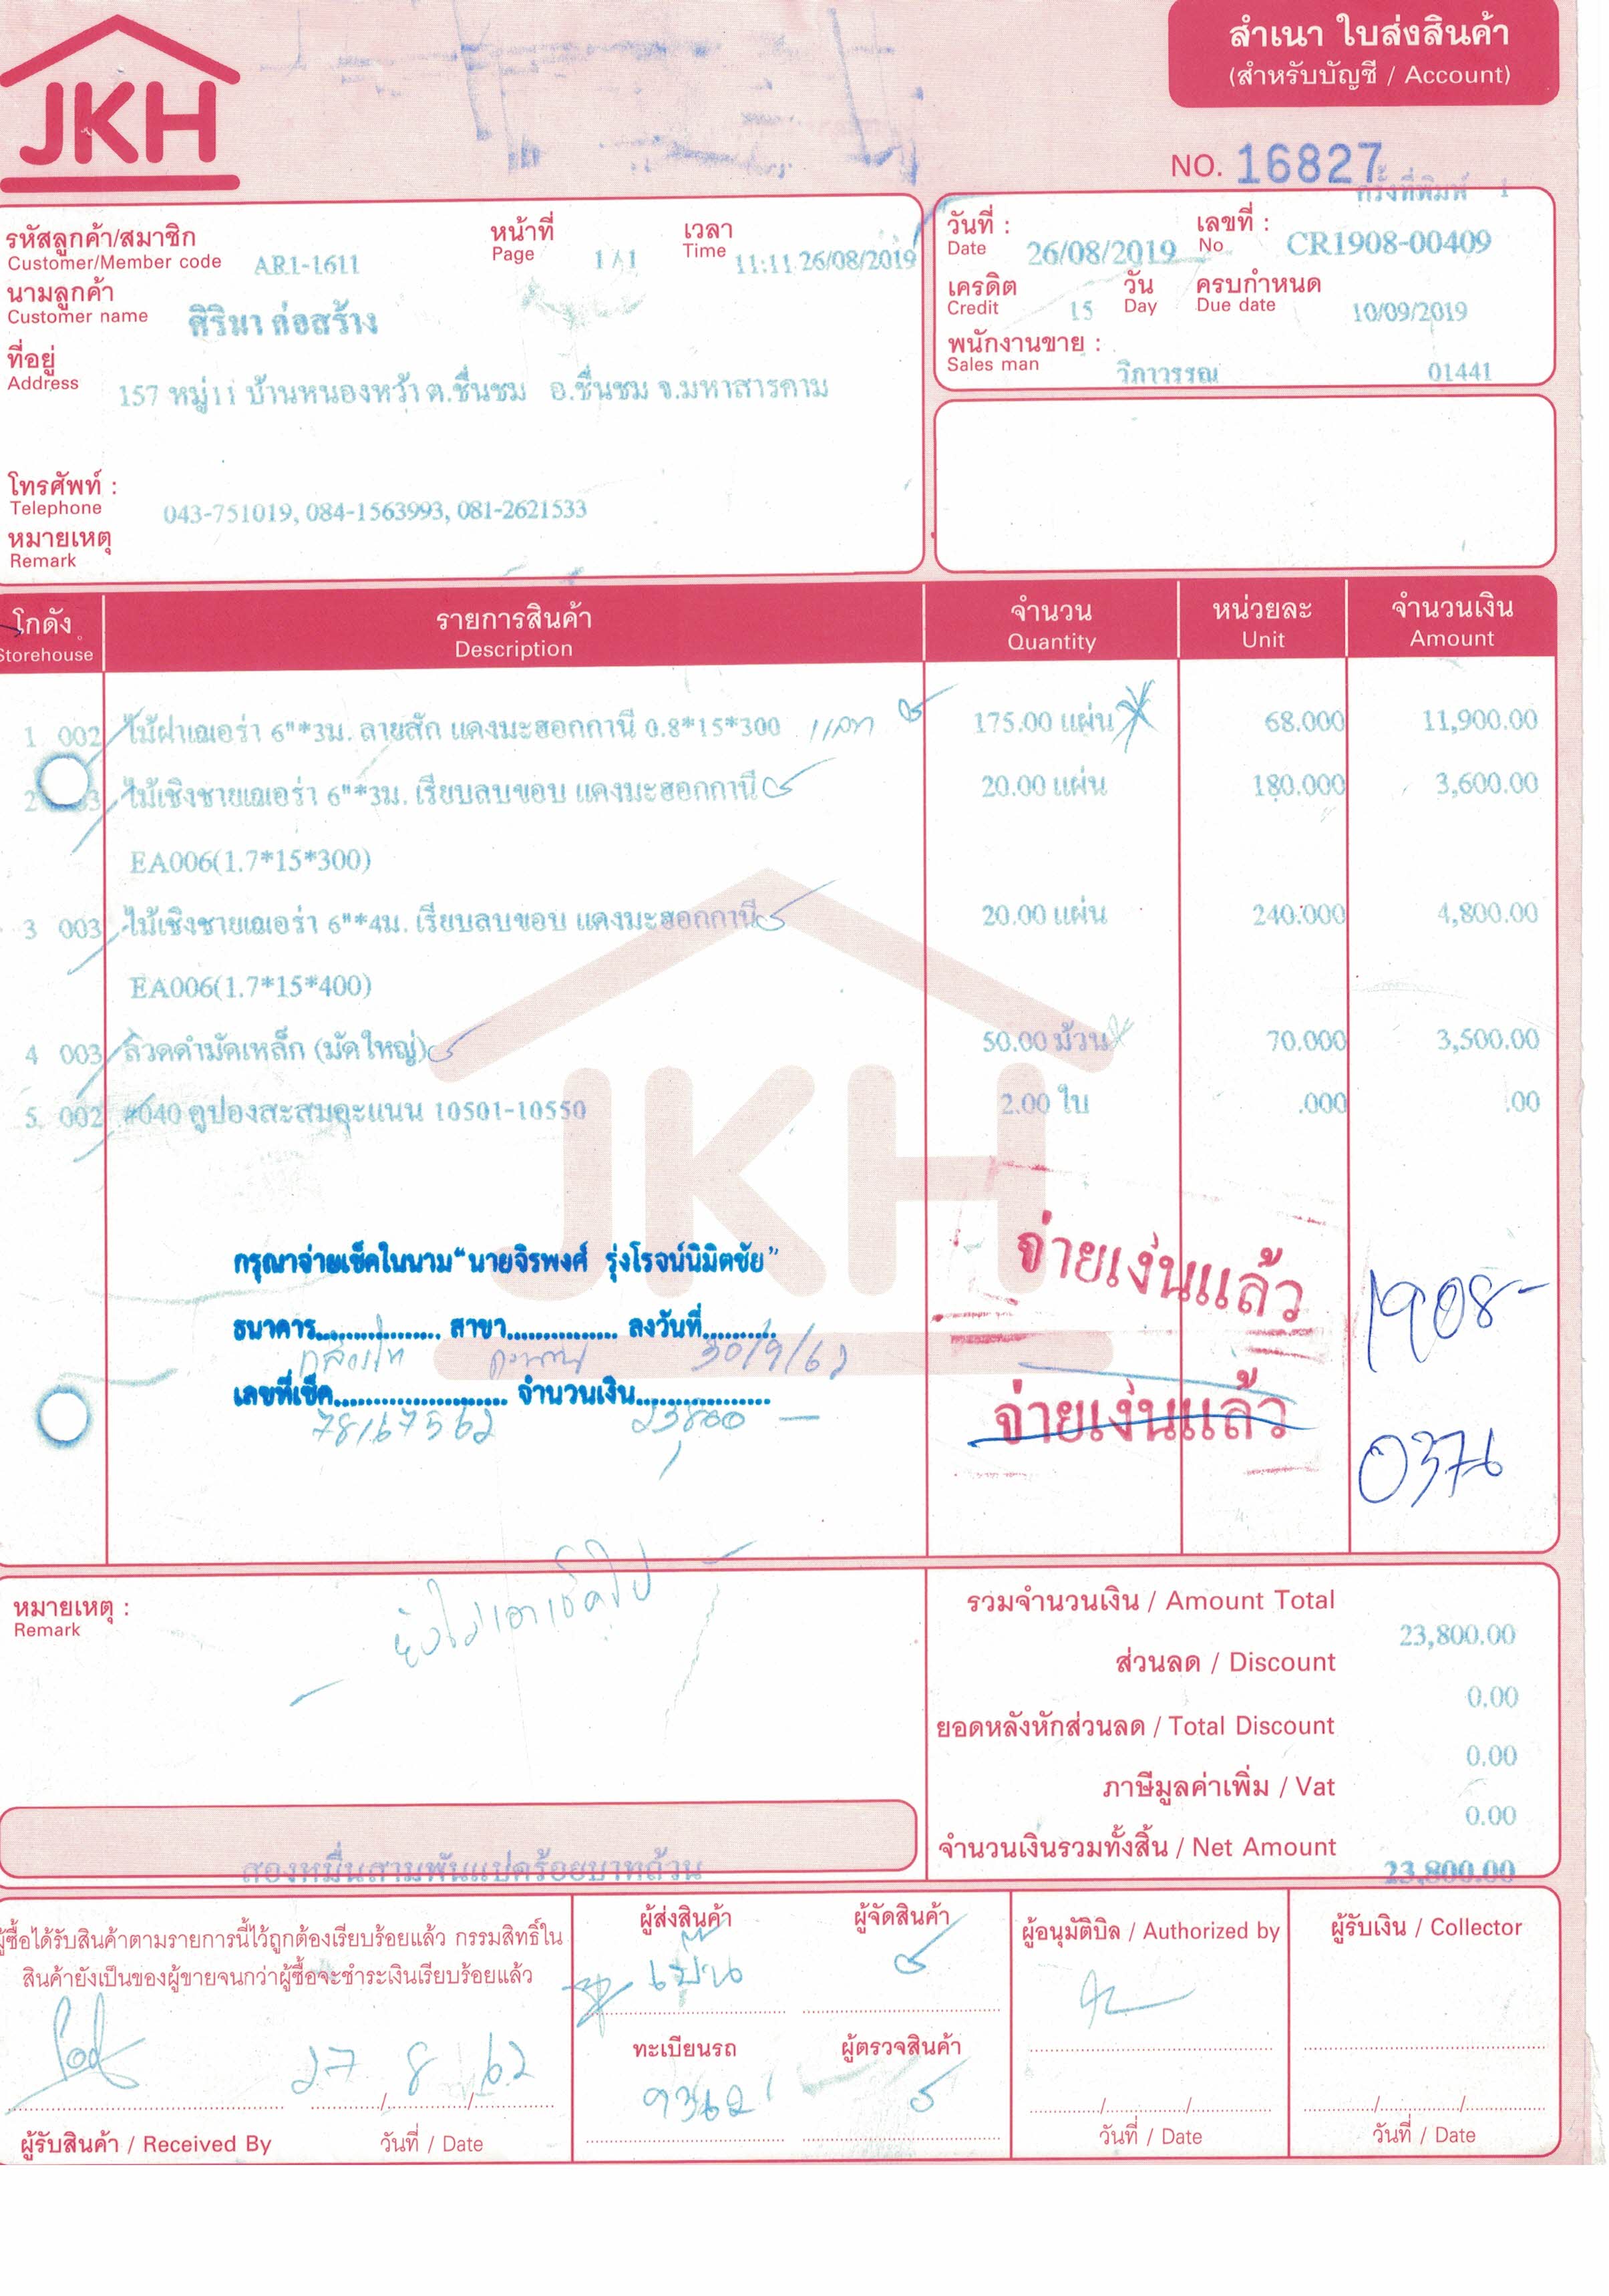 JKH
สำเนา ใบส่งสินค้า
(สำหรับบัญชี / Account)
NO. 16827
ครั้งที่พิมพ์ 1
รหัสลูกค้า/สมาชิก หน้าที่ เวลา
Customer/Member code AR1-1611 Page 1/1 Time 11:11 26/08/2019
นามลูกค้า
Customer name ศิริมา ก่อสร้าง
ที่อยู่
Address 157 หมู่11 บ้านหนองหว้า ต.ชื่นชม อ.ชื่นชม จ.มหาสารคาม
โทรศัพท์ :
Telephone 043-751019, 084-1563993, 081-2621533
หมายเหตุ
Remark
วันที่ : เลขที่ :
Date 26/08/2019 No CR1908-00409
เครดิต วัน ครบกำหนด
Credit 15 Day Due date 10/09/2019
พนักงานขาย :
Sales man วิภาวรรณ 01441
โกดัง รายการสินค้า จำนวน หน่วยละ จำนวนเงิน
Storehouse Description Quantity Unit Amount
1 002 ไม้ฝาเฌอร่า 6"*3ม. ลายสัก แดงมะฮอกกานี 0.8*15*300 175.00 แผ่น 68.000 11,900.00
2 ไม้เชิงชายเฌอร่า 6"*3ม. เรียบลบขอบ แดงมะฮอกกานี 20.00 แผ่น 180.000 3,600.00
EA006(1.7*15*300)
3 003 ไม้เชิงชายเฌอร่า 6"*4ม. เรียบลบขอบ แดงมะฮอกกานี 20.00 แผ่น 240.000 4,800.00
EA006(1.7*15*400)
4 003 ลวดดำมัดเหล็ก (มัดใหญ่) 50.00 ม้วน 70.000 3,500.00
5 002 #040 คูปองสะสมคะแนน 10501-10550 2.00 ใบ .000 .00
JKH
กรุณาจ่ายเช็คในนาม "นายจิรพงศ์ รุ่งโรจน์นิมิตชัย"
ธนาคาร................. สาขา............... ลงวันที่..........
กสิกรไทย 30/9/62
เลขที่เช็ค........................ จำนวนเงิน..................
78167562 23800 -
จ่ายเงินแล้ว
จ่ายเงินแล้ว
1908-
0376
หมายเหตุ :
Remark
ยังไม่เอาเช็คไป
รวมจำนวนเงิน / Amount Total 23,800.00
ส่วนลด / Discount 0.00
ยอดหลังหักส่วนลด / Total Discount 0.00
ภาษีมูลค่าเพิ่ม / Vat 0.00
จำนวนเงินรวมทั้งสิ้น / Net Amount 23,800.00
สองหมื่นสามพันแปดร้อยบาทถ้วน
ผู้ซื้อได้รับสินค้าตามรายการนี้ไว้ถูกต้องเรียบร้อยแล้ว กรรมสิทธิ์ใน
สินค้ายังเป็นของผู้ขายจนกว่าผู้ซื้อจะชำระเงินเรียบร้อยแล้ว
27 / 8 / 62
ผู้รับสินค้า / Received By วันที่ / Date
ผู้ส่งสินค้า ผู้จัดสินค้า
ทะเบียนรถ ผู้ตรวจสินค้า
ผู้อนุมัติบิล / Authorized by
วันที่ / Date
ผู้รับเงิน / Collector
วันที่ / Date